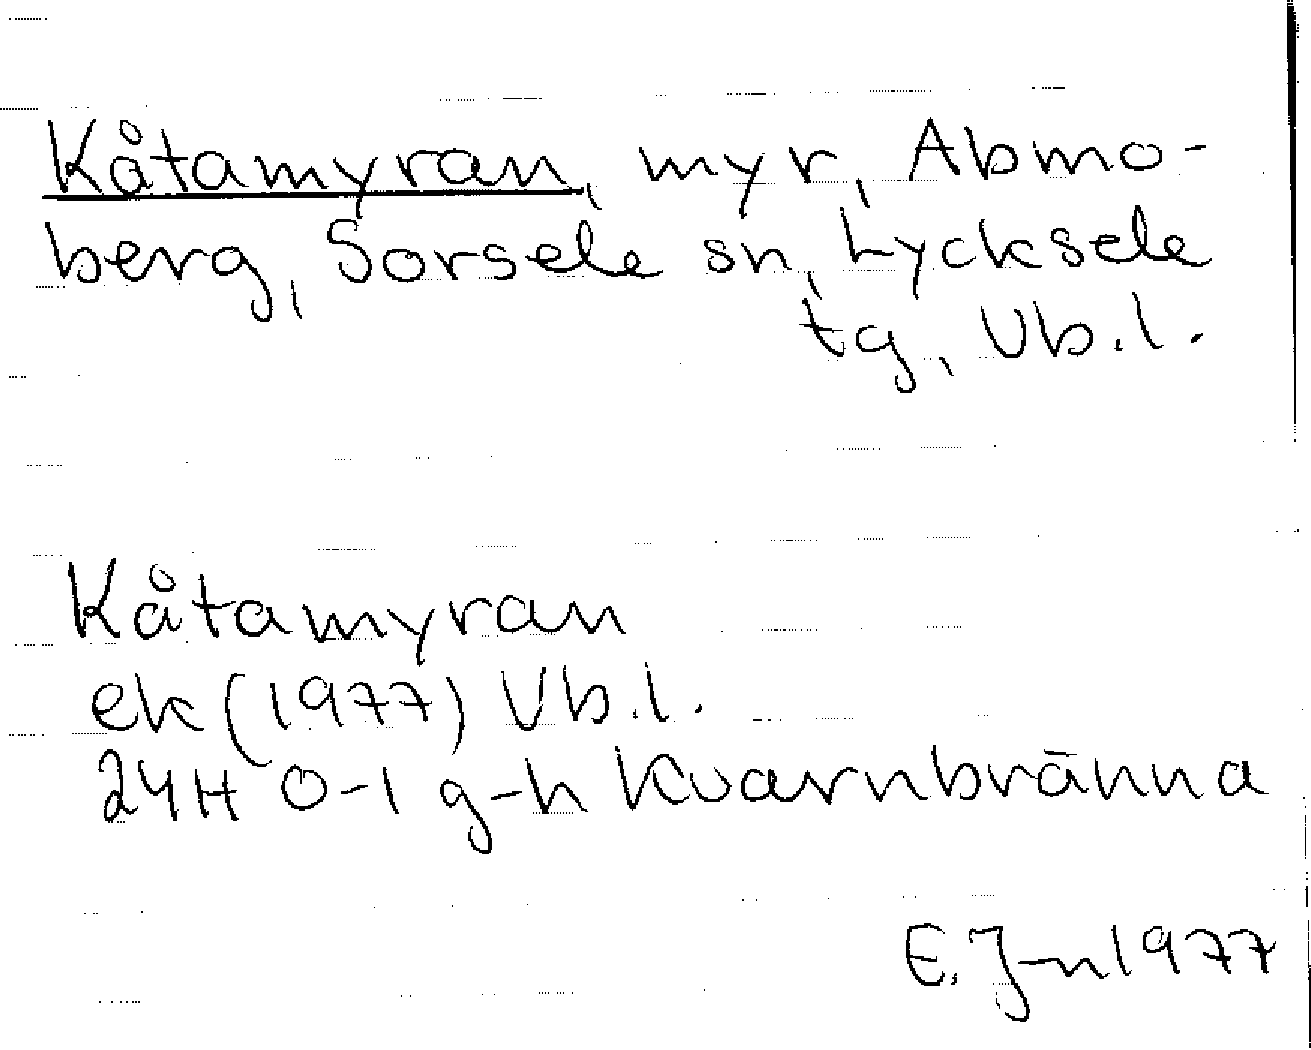 Kåtamyran, myr, Abmo-
berg, Sorsele sn, Lycksele
tg, Vb.l.
Kåtamyran
ek (1977) Vb.l.
24H 0-1 g-h Kvarnbränna
E. J-n 1977